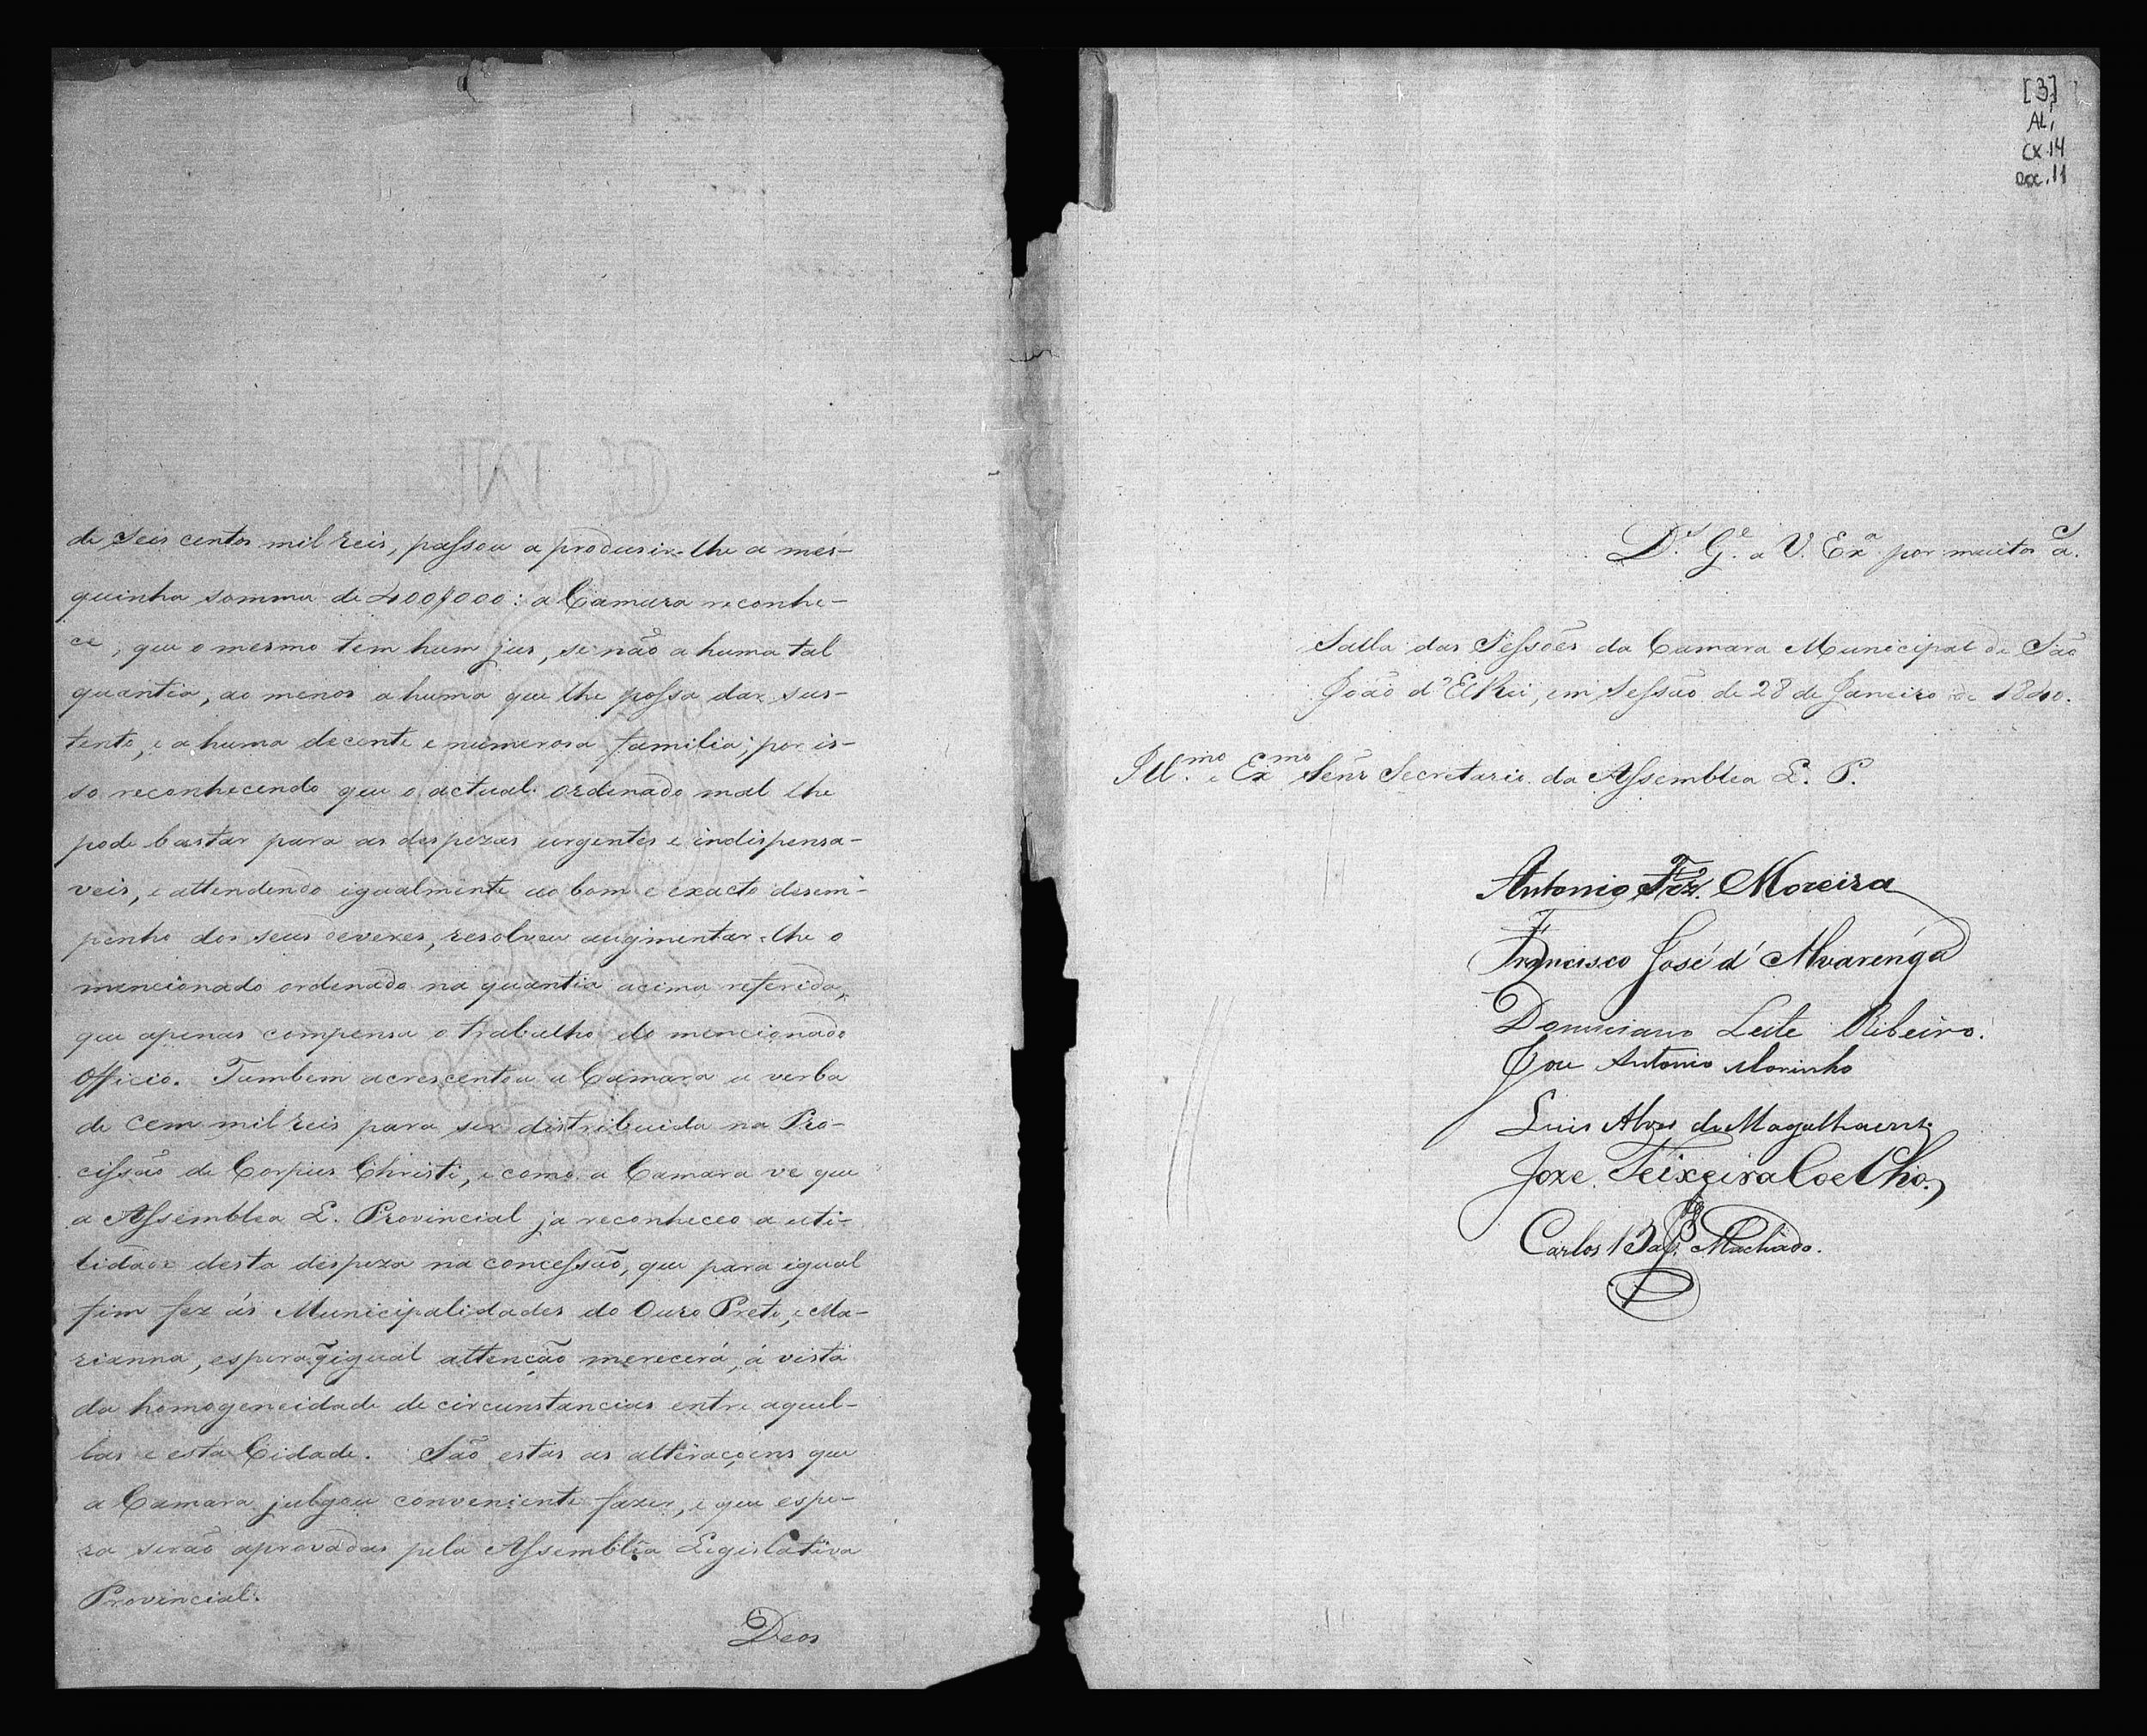 de Seis centos mil reis, passou a produsir-lhe a mes-
quinha somma de 400$000: a Camara reconhe-
ce, que o mesmo tem hum jus, se não a huma tal
quantia, ao menos a huma que lhe possa dar sus-
tento, e a huma decente e numerosa familia; por is-
so reconhecendo que o actual ordenado mal lhe
pode bastar para as despezas urgentes e indispensa-
veis, e attendendo igualmente ao bom e exacto desem-
penho dos seus deveres, resolveu augmentar-lhe o
mencionado ordenado na quantia acima referida,
que apenas compensa o trabalho do mencionado
Officio. Tambem acrescentou a Camara a verba
de cem mil reis para ser distribuida na Pro-
cissão de Corpus Christi, e como a Camara ve que
a Assemblea L. Provincial ja reconheceo a uti-
lidade desta despeza na concessão, que para igual
fim fez ás Municipalidades do Ouro Preto, e Ma-
rianna, espera q̃ igual attenção merecerá, á vista
da homogeneidade de circunstancias entre aquel-
las e esta Cidade. São estas as alteraçoens que
a Camara julgou conveniente fazer, e que espe-
ra serão aprovadas pela Assemblea Legislativa
Provincial.
Deos
[3]
AL,
CX.14
DOC.11
D.s G.e a V. Ex.a por muitos a.s
Salla das Sessões da Camara Municipal de São
João d'El Rei, em Sessão de 28 de Janeiro de 1840.
Ill.mo e Ex.mo Senr Secretario da Assemblea L. P.
Antonio Frz. Moreira
Francisco José d'Alvarenga
Domiciano Leite Ribeiro.
Joze Antonio Marinho
Luis Alves de Magalhaens
Joze Teixeira Coelho
Carlos Bap. Machado.